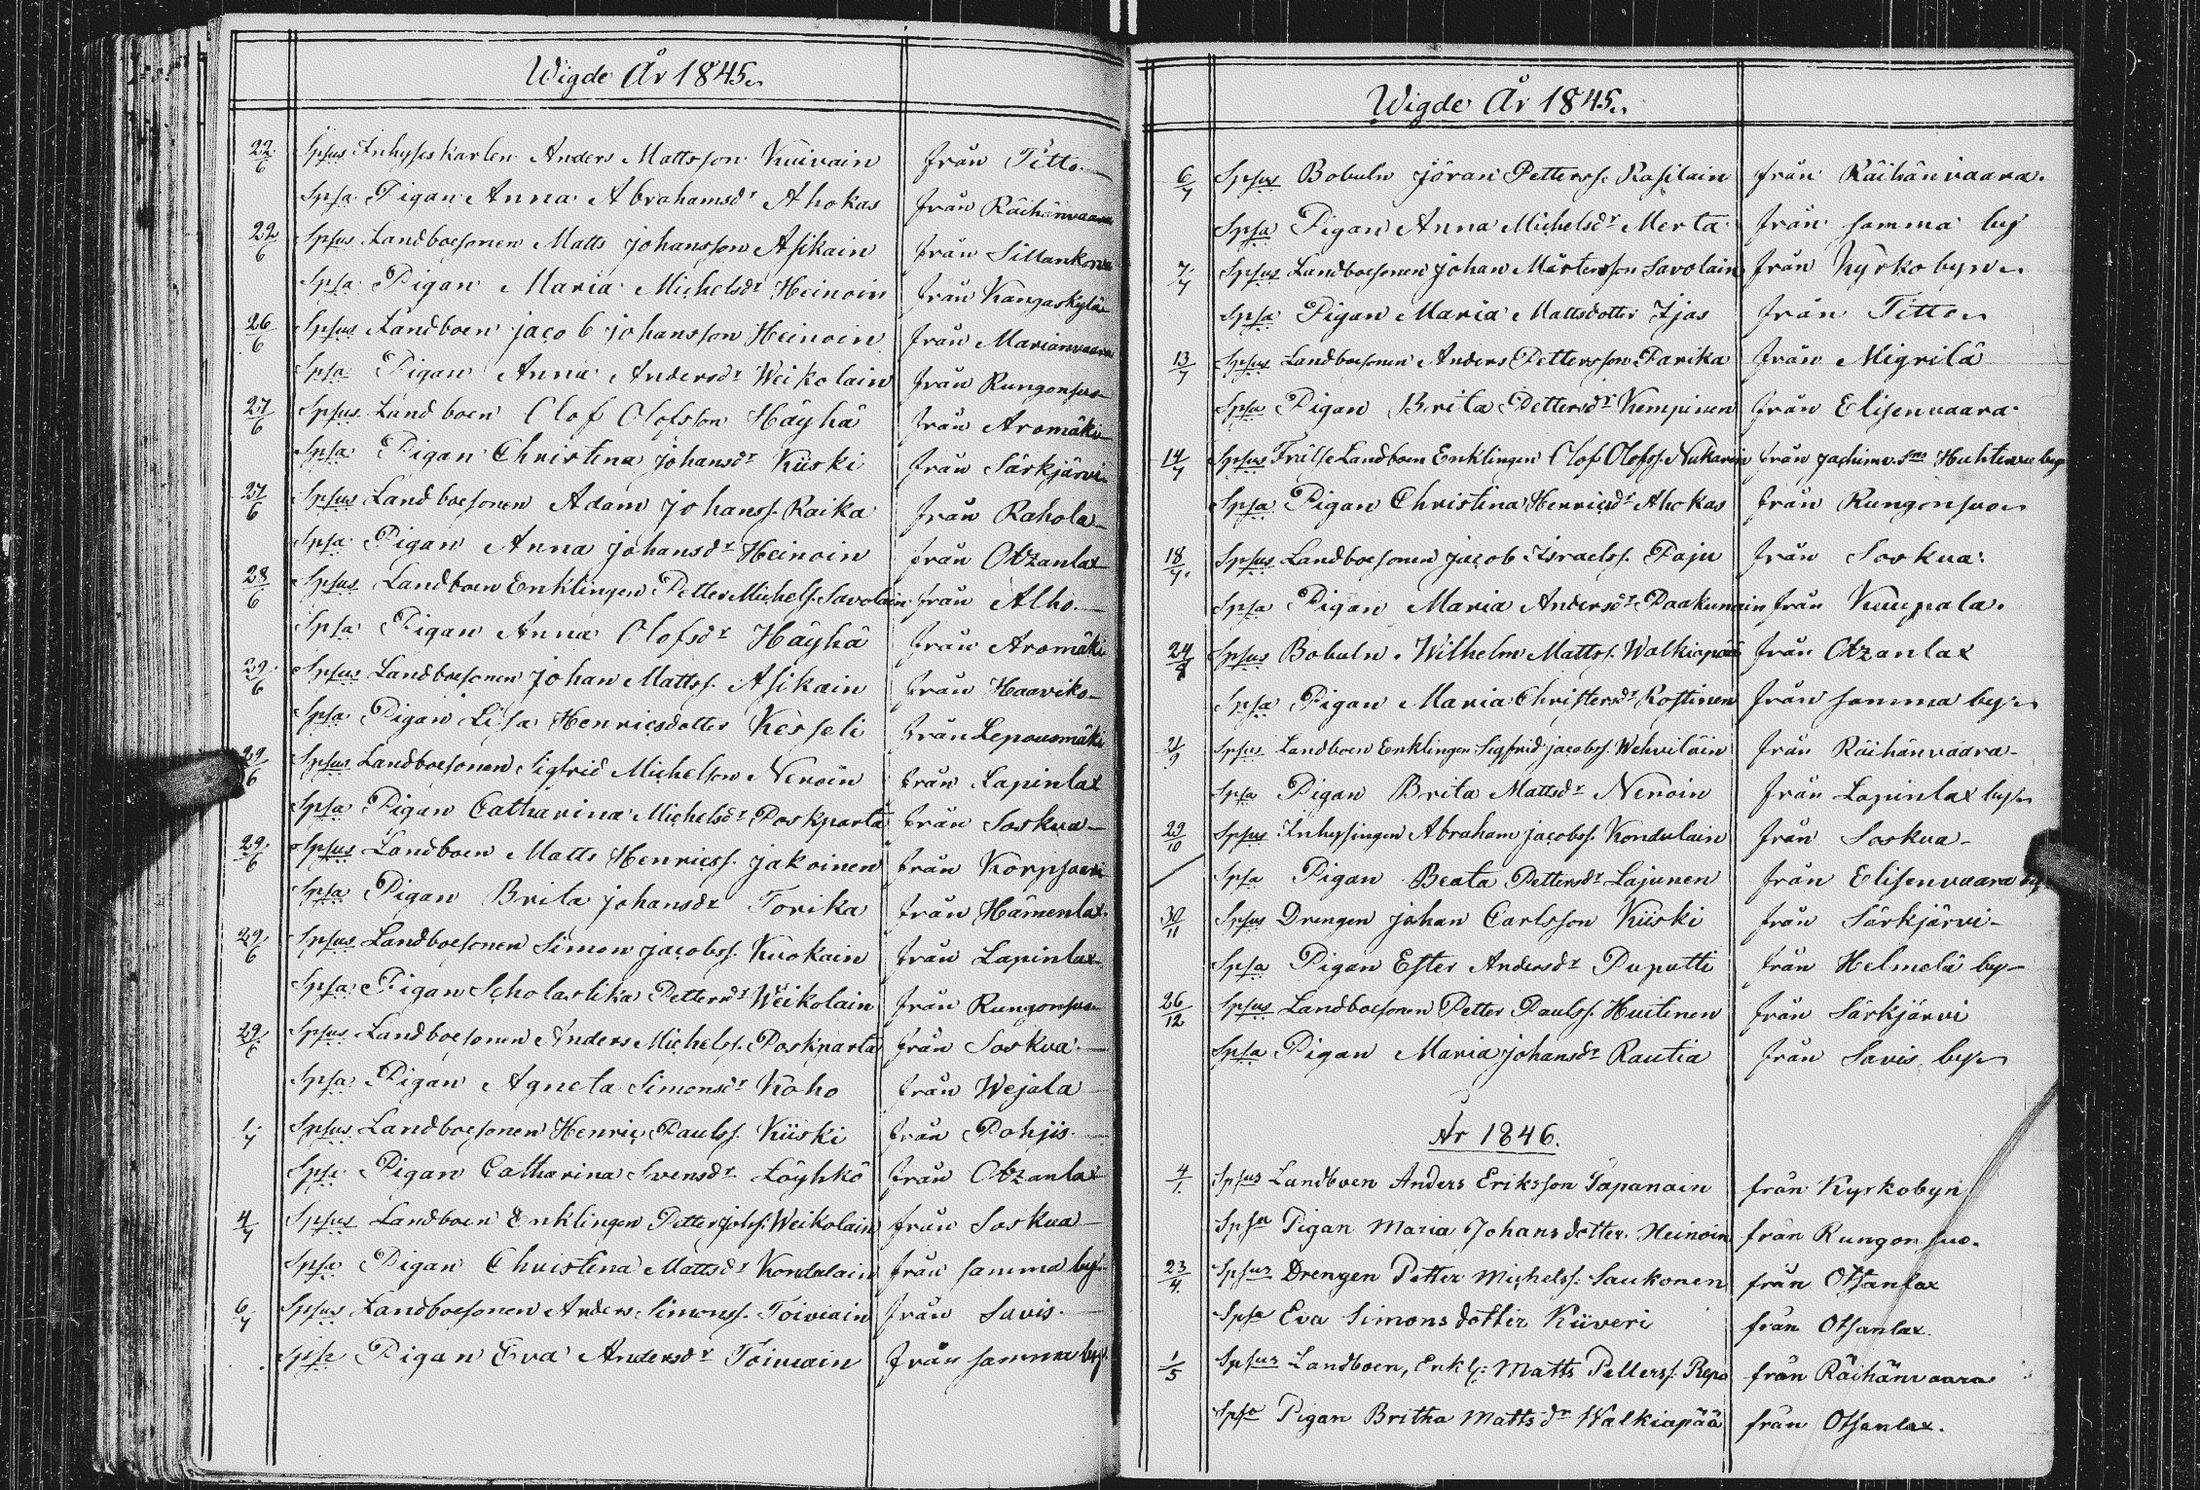 Wigde År 1845.
22/6 Spsus Inhyses Karlen Anders Mattsson Kuivain från Titto
Spsa Pigan Anna Abrahamsdr Ahokas från Räihänvaara
22/6 Spsus Landboesonen Matts Johansson Asikain från Sillankorva
Spsa Pigan Maria Michelsdr Heinoin från Kangaskylä
26/6 Spsus Landboen Jacob Johansson Heinoin från Marianvaara
Spsa Pigan Anna Andersdr Weikolain från Rungonsuo
27/6 Spsus Landboen Olof Olofsson Häyhä från Aromäki
Spsa Pigan Christina Johansdr Kiiski från Särkjärvi
27/6 Spsus Landboesonen Adam Johanss. Raika från Rahola
Spsa Pigan Anna Johansdr Heinoin från Otzanlax
28/6 Spsus Landboen Enklingen Petter Michels. Savolain från Alho
Spsa Pigan Anna Olofsdr Häyhä från Aromäki
29/6 Spsus Landboesonen Johan Mattss. Asikain från Haaviko
Spsa Pigan Lisa Henricsdotter Kesseli från Lepousmäki
29/6 Spsus Landboesonen Sigfrid Michelson Neroin från Lapinlax
Spsa Pigan Catharina Michelsdr Poskparta från Soskua
29/6 Spsus Landboen Matts Henricss. Jakoinen från Korpsaari
Spsa Pigan Brita Johansdr Torika från Hämenlax
29/6 Spsus Landboesonen Simon Jacobss. Kuokain från Lapinlax
Spsa Pigan Scholastika Pettersdr Weikolain från Rungonsuo
29/6 Spsus Landboesonen Anders Michelss. Poskparta från Soskua
Spsa Pigan Agneta Simonsdr Koho från Wejala
1/7 Spsus Landboesonen Henric Paulss. Kiiski från Pohjis
Spsa Pigan Catharina Svensdr Löyhkö från Otzanlax
4/7 Spsus Landboen Enklingen Petter Johss. Weikolain från Soskua
Spsa Pigan Christina Mattsdr Kondulain från samma by
6/7 Spsus Landboesonen Anders Simonss. Toiviain från Savis
Spsa Pigan Eva Andersdr Toiviain från samma by
Wigde År 1845.
6/7 Spsus Bobuln Jöran Petterss. Rasilain från Räihänvaara.
Spsa Pigan Anna Michelsdr Merta från samma by
7/7 Spsus Landboesonen Johan Mårtensson Savolain från Kyrkobyn
Spsa Pigan Maria Mattsdotter Ijas från Titto
13/7 Spsus Landboesonen Anders Pettersson Parika från Migrilä
Spsa Pigan Brita Pettersdr Kempinen från Elisenvaara
14/7 Spsus Frälse Landboen Enklingen Olof Olofss. Nukarin från
Spsa Pigan Christina Henricsdr Ahokas från Rungonsuo
18/7 Spsus Landboesonen Jacob Israelss. Paju från Soskua
Spsa Pigan Maria Andersdr Paakunain från Kumpala.
24/8 Spsus Bobuln Wilhelm Mattss. Walkiapää från Otzanlax
Spsa Pigan Maria Christersdr Rostinen från samma by
21/9 Spsus Landboen Enklingen Sigfrid Jacobss. Wehviläin från Räihänvaara
Spsa Pigan Brita Mattsdr Neroin från Lapinlax by
29/10 Spsus Inhysingen Abraham Jacobss. Kondulain från Soskua
Spsa Pigan Beata Pettersdr Lajunen från Elisenvaara by
30/11 Spsus Drengen Johan Carlsson Kiiski från Särkjärvi
Spsa Pigan Ester Andersdr Puputti från Helmelä by
26/12 Spsus Landboesonen Petter Paulss. Huitinen från Särkjärvi
Spsa Pigan Maria Johansdr Rautia från Savis by
År 1846.
4/1. Spsus Landboen Anders Eriksson Tapanain från Kyrkobyn
Spsa Pigan Maria Johansdotter Heinoin från Rungonsuo.
23/4. Spsus Drengen Petter Michelss. Saukonen från Otsanlax
Spsa Eva Simonsdotter Kiiveri från Otsanlax.
1/5 Spsus Landboen, Enkl: Matts Petterss. Repo från Räihänvaara
Spsa Pigan Britha Mattsdr Walkiapää från Otsanlax.